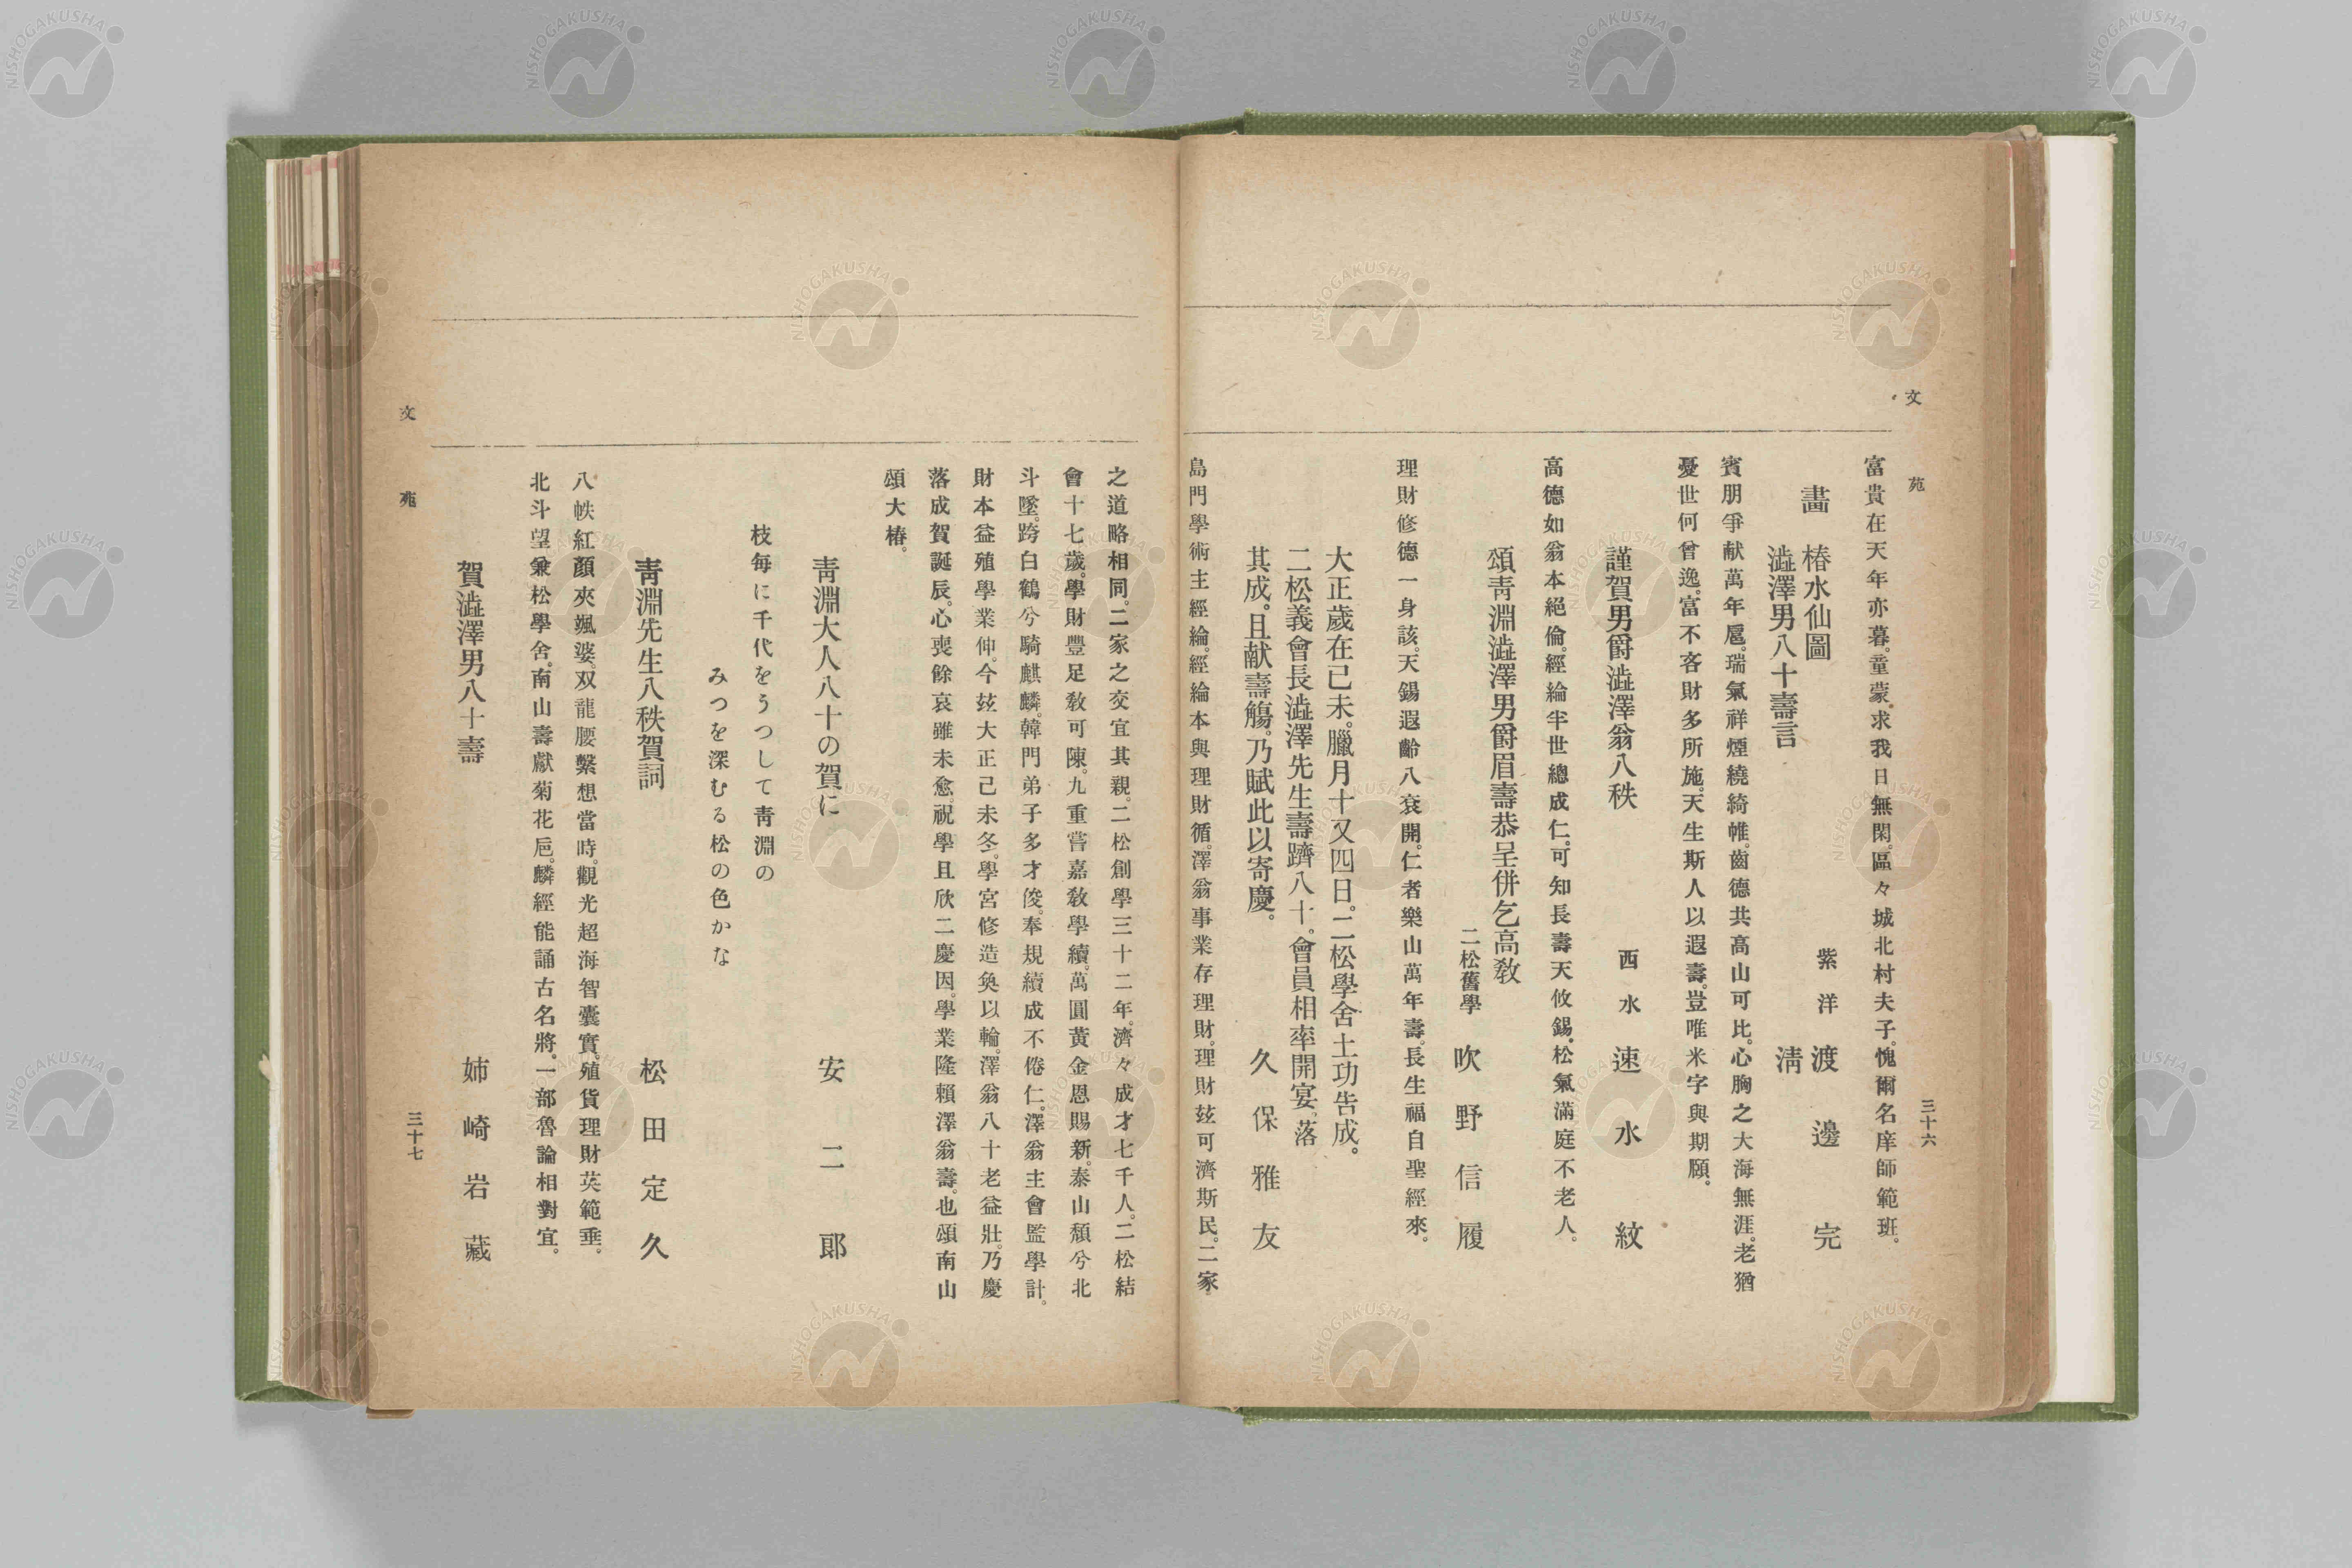 文苑
三十六
富貴在天年亦暮。童蒙求我日無閑。區々城北村夫子。愧爾名庠師範班。
畫 椿水仙圖 紫洋 渡邊完
澁澤男八十壽言 淸
賓朋爭献萬年巵。瑞氣祥煙繞綺帷。齒德共高山可比。心胸之大海無涯。老猶
憂世何曾逸。富不客財多所施。天生斯人以遐壽。豈唯米字與期願。
謹賀男爵澁澤翁八秩 西水 速水紋
高德如翁本絕倫。經綸半世總成仁。可知長壽天攸錫。松氣滿庭不老人。
頌靑淵澁澤男爵眉壽恭呈併乞高敎
二松舊學 吹野信履
理財修德一身該。天錫遐齡八袞開。仁者樂山萬年壽。長生福自聖經來。
大正歲在己未。臘月十又四日。二松學舍土功告成。
二松義會長澁澤先生壽躋八十。會員相率開宴。落
其成。且献壽觴。乃賦此以寄慶。 久保雅友
島門學術主經綸。經綸本與理財循。澤翁事業存理財。理財玆可濟斯民。二家
之道略相同。二家之交宜其親。二松創學三十二年。濟々成才七千人。二松結
會十七歲。學財豐足敎可陳。九重嘗嘉敎學績。萬圓黃金恩賜新。泰山頹兮北
斗墜。跨白鶴兮騎麒麟。韓門弟子多才俊。奉規續成不倦仁。澤翁主會監學計。
財本益殖學業伸。今玆大正己未冬。學宮修造奐以輪。澤翁八十老益壯。乃慶
落成賀誕辰。心喪餘哀雖未愈。祝學且欣二慶因。學業隆賴澤翁壽。也頌南山
頌大椿。
靑淵大人八十の賀に 安二郎
枝每に千代をうつして靑淵の
みつを深むる松の色かな
靑淵先生八秩賀詞 松田定久
八帙紅顏夾颯婆。双龍腰繫想當時。觀光超海智囊實。殖貨理財英範垂。
北斗望兼松學舍。南山壽獻菊花巵。麟經能誦古名將。一部魯論相對宜。
賀澁澤男八十壽 姉崎岩藏
文苑
三十七